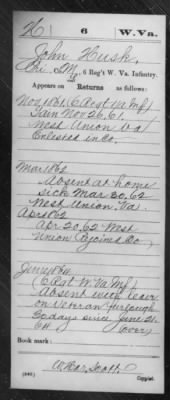 H | 6 | W. Va.
John Husk
Co. M, 6 Reg't W. Va. Infantry.
Appears on Returns as follows:
Nov 1861 (6 Regt Va Inf)
Nov 26, 61,
West Union Va
Enlested in Co.
Mar 1862
Absent at home
sick Mar 30, 62
West Union, Va.
Apr 1862
Apr. 20, 62 West
Union Rejoined Co.
June 1864
(6 Regt W Va Inf)
Absent with leave
on Veteran furlough
30 days since June 21,
64 (over)
Book mark:
(546)
Copyist.